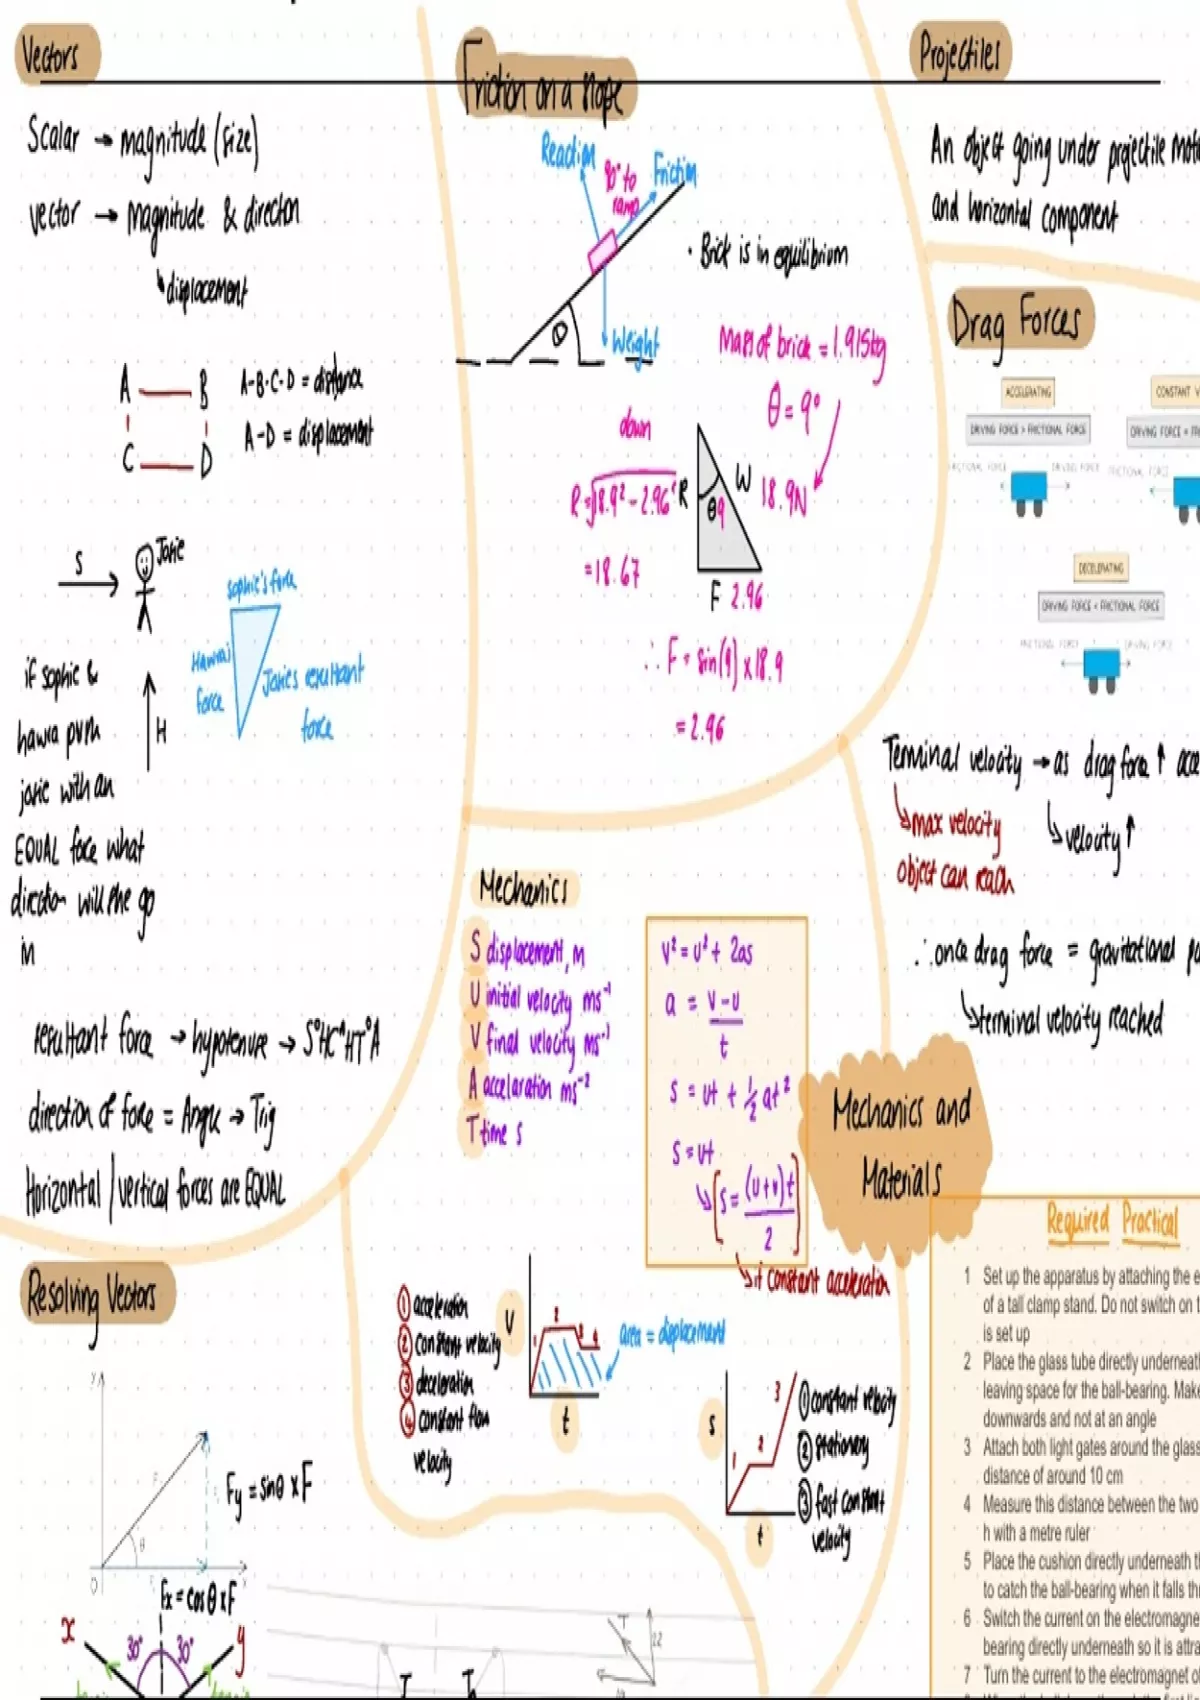 Vectors
Scalar → magnitude (size)
vector → magnitude & direction
↳ displacement
A B
C D
A-B-C-D = distance
A-D = displacement
S
Josie
H
if sophie &
hawra push
josie with an
EQUAL force what
direction will she go
in
sophie's force
Hawra's
force
Josies resultant
force
resultant force → hypotenuse → S°HC^HT°A
direction of force = Angle → Trig
Horizontal / vertical forces are EQUAL
Resolving Vectors
Y
F
θ
O
x
Fy = sinθ x F
Fx = cosθ x F
x
30° 30°
y
T
12
Friction on a slope
Reaction
90° to
ramp
Friction
Weight
θ
· Brick is in equilibrium
Mass of brick = 1.915kg
θ = 9°
down
R = √18.9² - 2.96²
= 18.67
R
θ 9
W 18.9N
F 2.96
∴ F = sin(9) x 18.9
= 2.96
Mechanics
S displacement, m
U initial velocity ms⁻¹
V final velocity ms⁻¹
A accelaration ms⁻²
T time s
v² = u² + 2as
a = v - u
t
s = ut + ½ at²
s = ut
↳ [s = (u+v)t
2]
↳ if constant acceleration
① acceleration
② constant velocity
③ deceleration
④ constant slow
velocity
V
1 2 3 4
t
area = displacement
s
1 2 3
t
① constant velocity
② stationary
③ fast constant
velocity
Projectiles
An object going under projectile mot
and horizontal component
Drag Forces
ACCELERATING
DRIVING FORCE > FRICTIONAL FORCE
FRICTIONAL FORCE DRIVING FORCE
CONSTANT V
DRIVING FORCE = FR
FRICTIONAL FORCE
DECELERATING
DRIVING FORCE < FRICTIONAL FORCE
FRICTIONAL FORCE DRIVING FORCE
Terminal velocity → as drag force ↑ acce
↳ max velocity
object can reach
↳ velocity ↑
∴ once drag force = gravitational
↳ terminal velocity reached
Mechanics and
Materials
Required Practical
1 Set up the apparatus by attaching the e
of a tall clamp stand. Do not switch on t
is set up
2 Place the glass tube directly underneath
leaving space for the ball-bearing. Make
downwards and not at an angle
3 Attach both light gates around the glass
distance of around 10 cm
4 Measure this distance between the two
h with a metre ruler
5 Place the cushion directly underneath th
to catch the ball-bearing when it falls thr
6 Switch the current on the electromagne
bearing directly underneath so it is attra
7 Turn the current to the electromagnet of